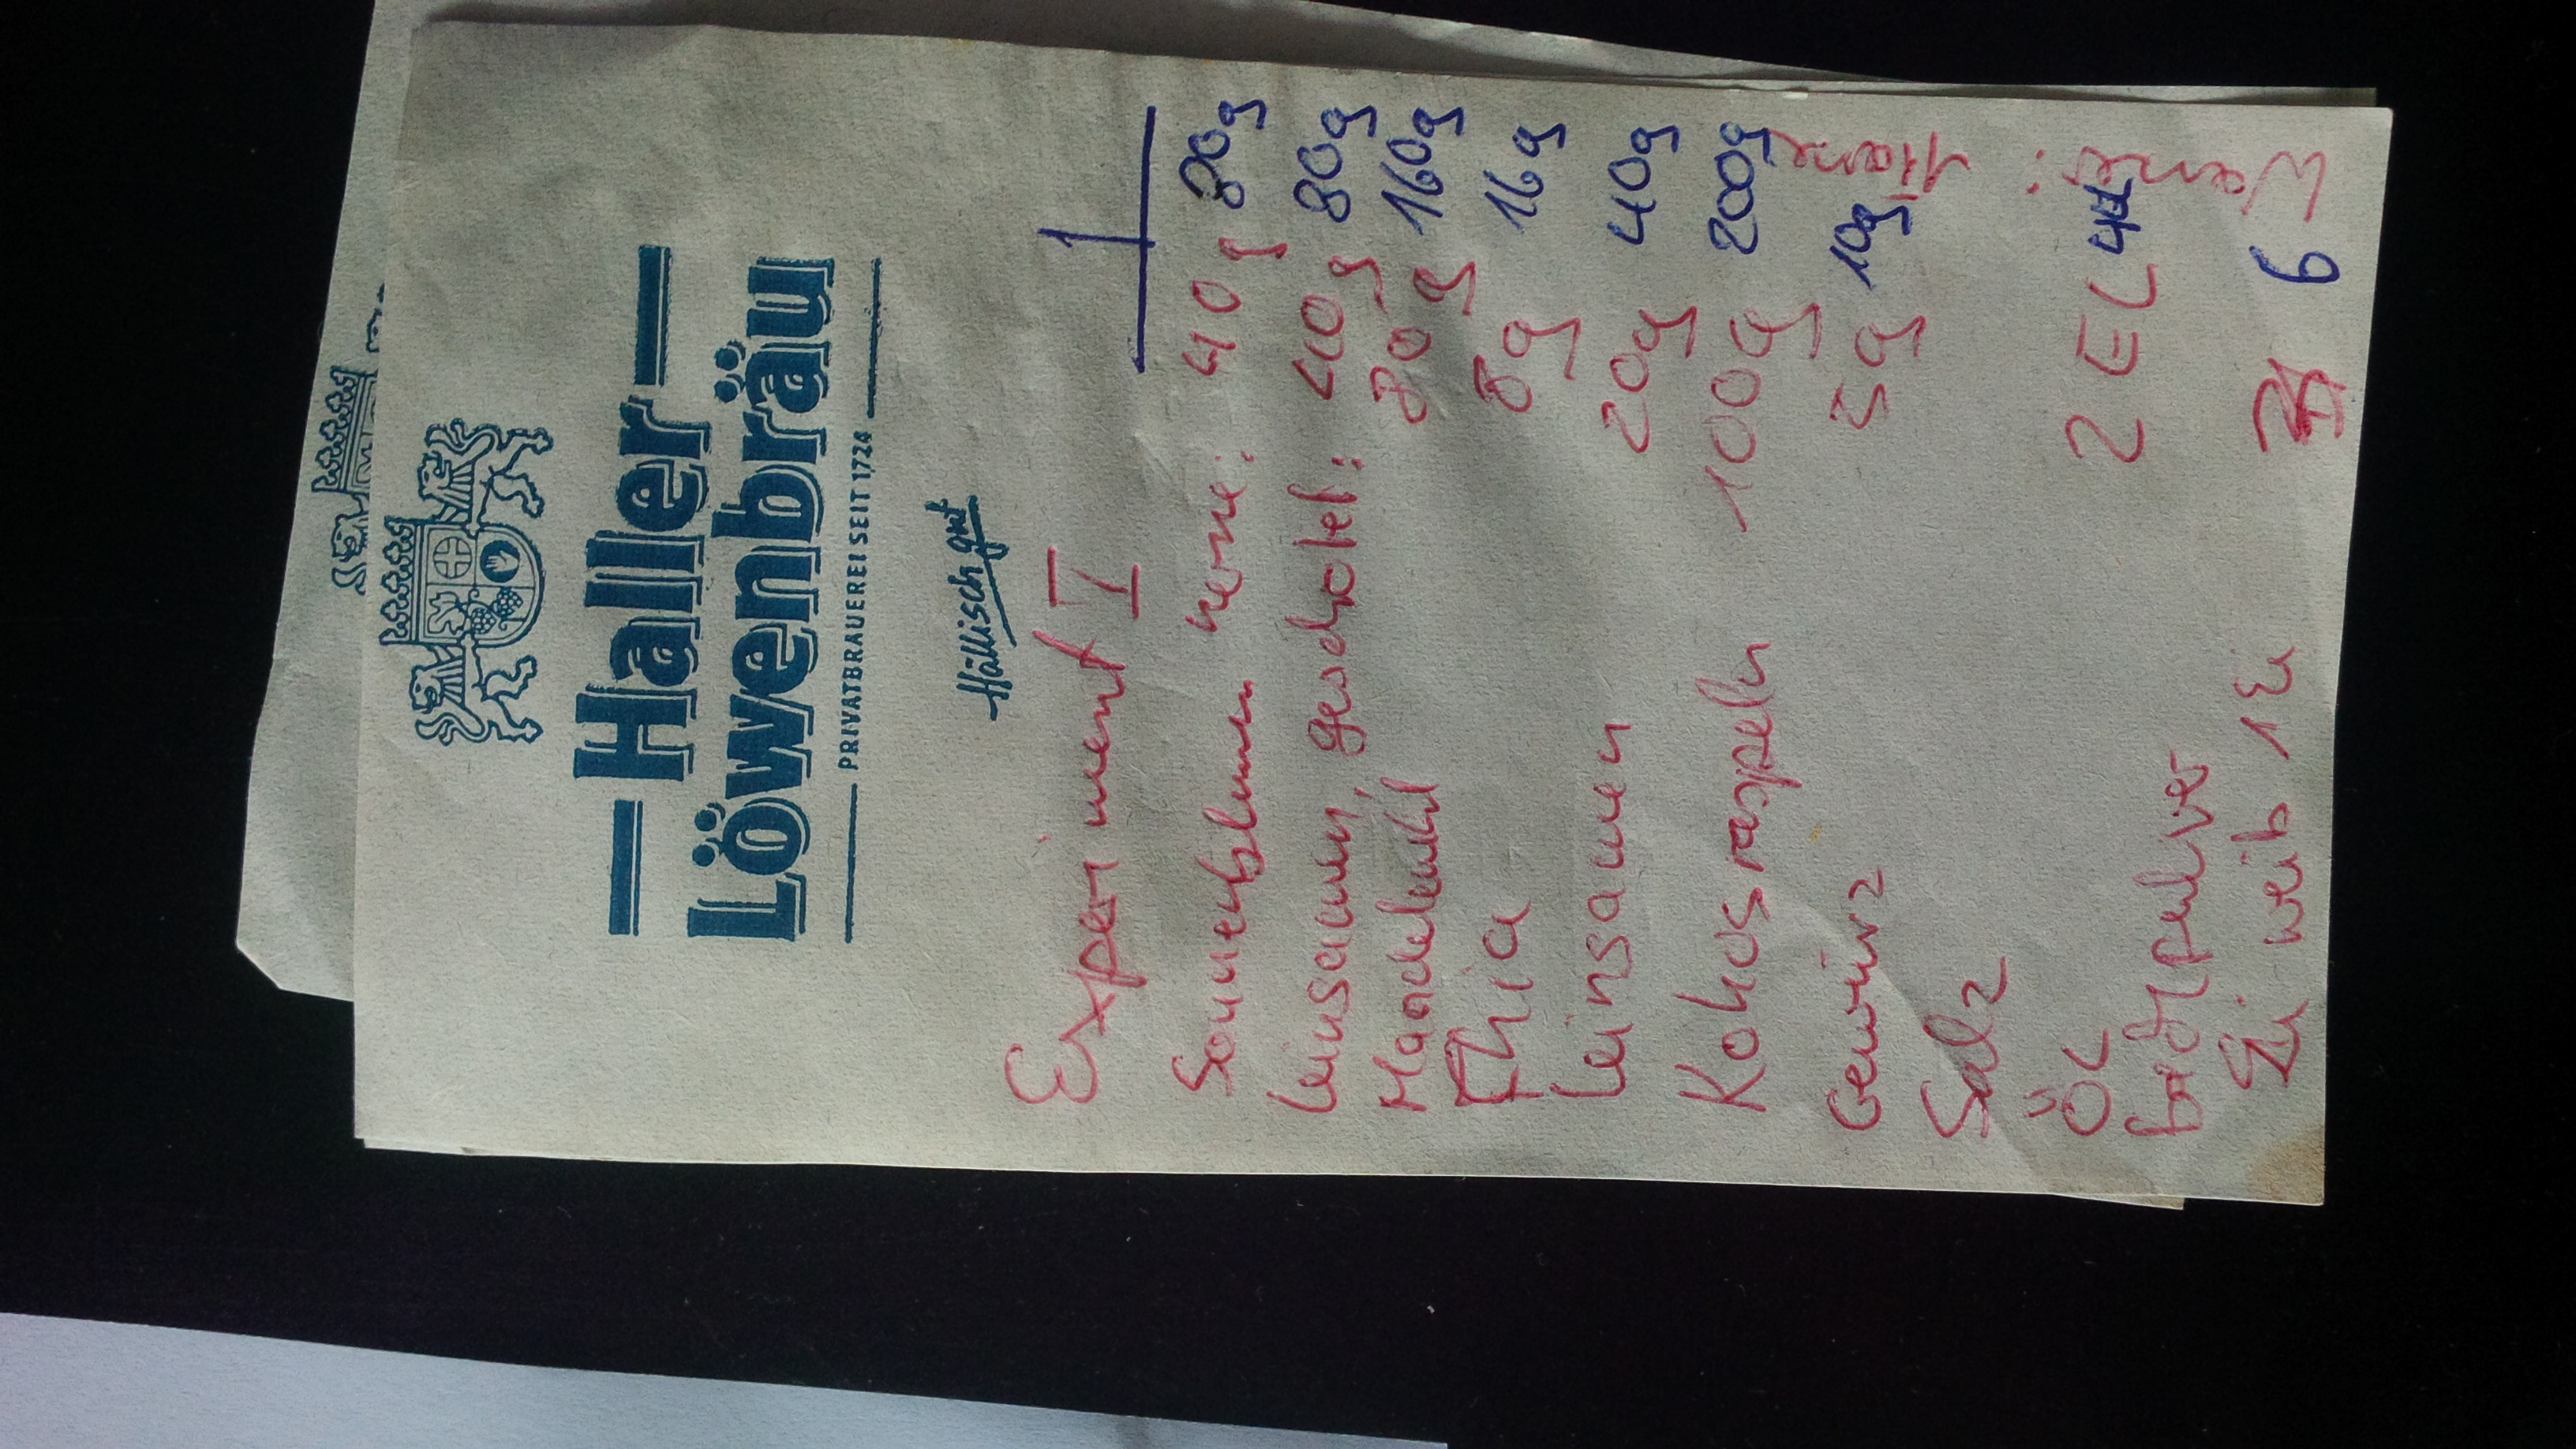 Haller
Löwenbräu
PRIVATBRAUEREI SEIT 1724
Hällisch gut
Experiment I
Sonnenblumen kerne: 40 g 80g
Leinsamen, geschrotet: 40 g 80g
Mandelmehl 80 g 160g
Chia 8g 16g
Leinsamen 20g 40g
Kokosraspeln 100g 200g
Gewürz 5g 10g
Salz
ÖL 2 EL 4
Backpulver
Eiweiß 1 Ei 6